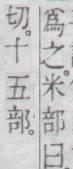 爲之。米部曰。
切。十五部。